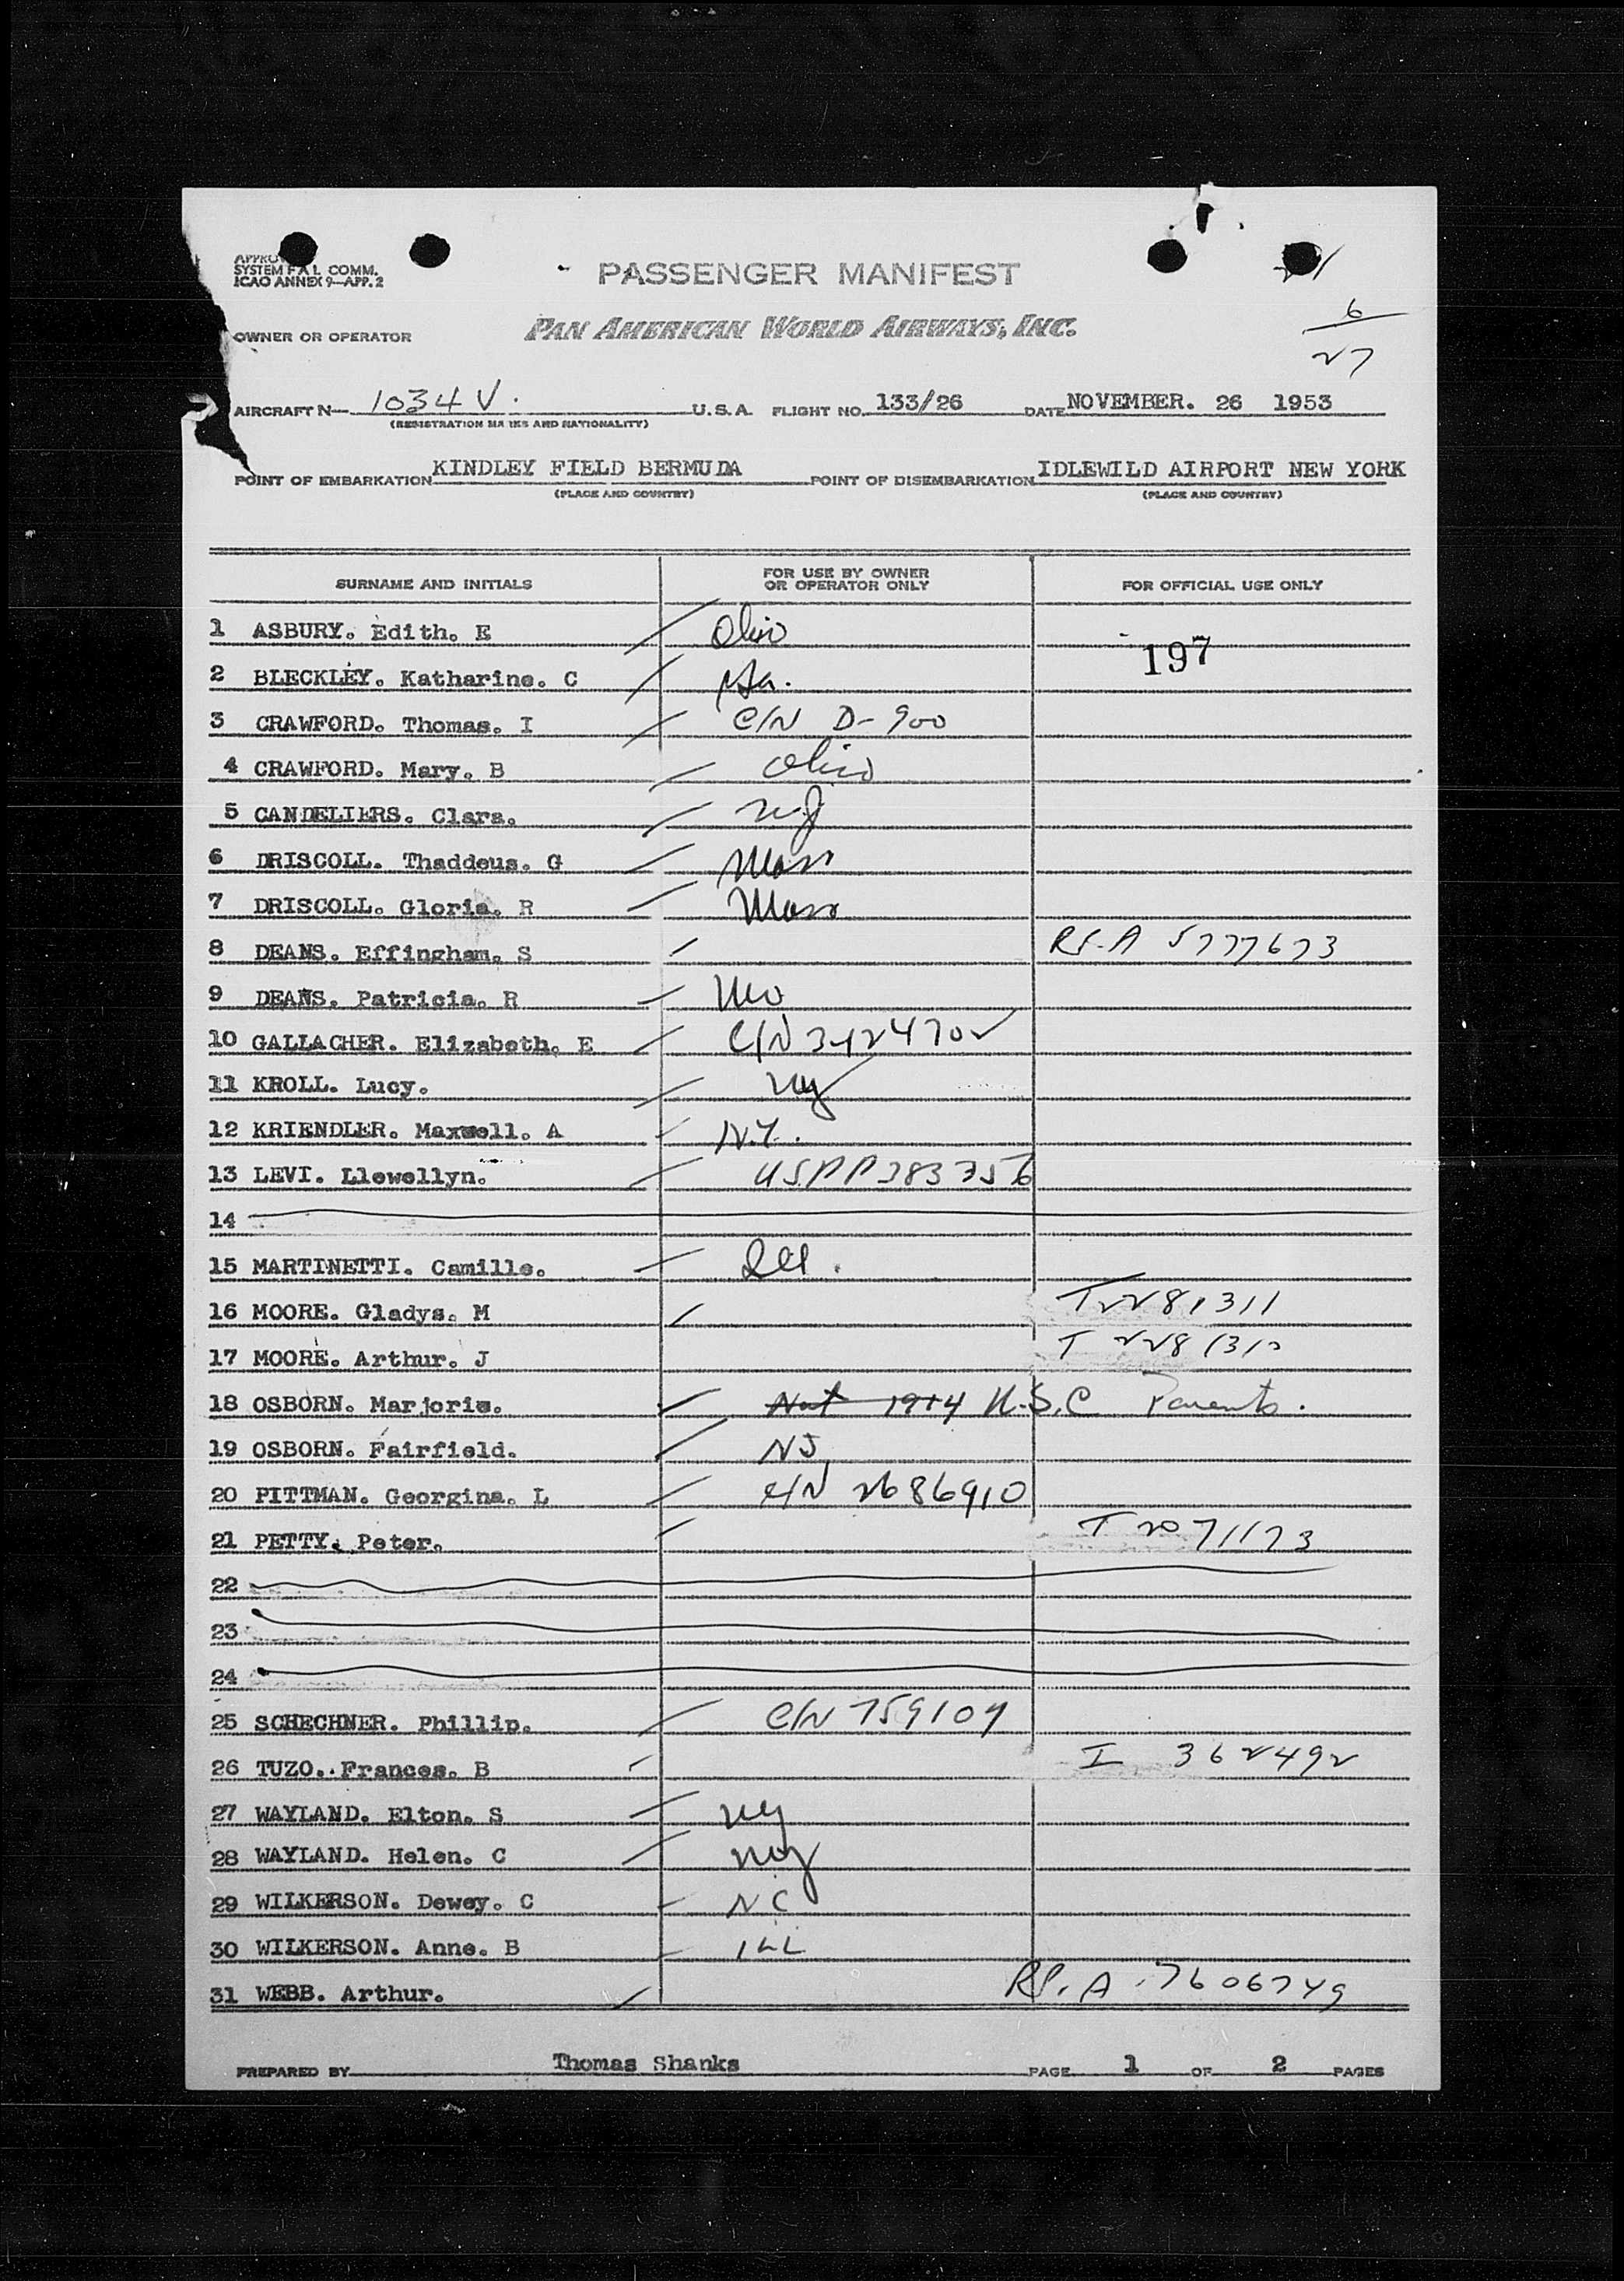 APPROV
SYSTEM F A L COMM.
ICAO ANNEX 9—APP. 2
PASSENGER MANIFEST
6
27
OWNER OR OPERATOR PAN AMERICAN WORLD AIRWAYS, INC.
AIRCRAFT N— 1034 V. U.S.A. FLIGHT NO. 133/26 DATE NOVEMBER. 26 1953
(REGISTRATION MARKS AND NATIONALITY)
POINT OF EMBARKATION KINDLEY FIELD BERMUDA POINT OF DISEMBARKATION IDLEWILD AIRPORT NEW YORK
(PLACE AND COUNTRY) (PLACE AND COUNTRY)
SURNAME AND INITIALS FOR USE BY OWNER OR OPERATOR ONLY FOR OFFICIAL USE ONLY
1 ASBURY. Edith. E Ohio
197
2 BLECKLEY. Katharine. C
3 CRAWFORD. Thomas. I C/N D-900
4 CRAWFORD. Mary. B Ohio
5 CANDELIERS. Clara. NJ
6 DRISCOLL. Thaddeus. G Mass
7 DRISCOLL. Gloria. R Mass
8 DEANS. Effingham. S A 5777673
9 DEANS. Patricia. R Mo
10 GALLACHER. Elizabeth. E C/N 3424702
11 KROLL. Lucy. Ny
12 KRIENDLER. Maxwell. A N.Y.
13 LEVI. Llewellyn. USPP 383356
14
15 MARTINETTI. Camille. Ill.
16 MOORE. Gladys. M T 2281311
17 MOORE. Arthur. J T 2281310
18 OSBORN. Marjorie. Nat 1914 U.S.C Parents.
19 OSBORN. Fairfield. NJ
20 PITTMAN. Georgina. L C/N 2686910
21 PETTY. Peter. T 2071173
22
23
24
25 SCHECHNER. Phillip. C/N 759109
26 TUZO. Frances. B I 362492
27 WAYLAND. Elton. S Ny
28 WAYLAND. Helen. C Ny
29 WILKERSON. Dewey. C NC
30 WILKERSON. Anne. B ILL
31 WEBB. Arthur. A 7606749
PREPARED BY Thomas Shanks PAGE 1 OF 2 PAGES